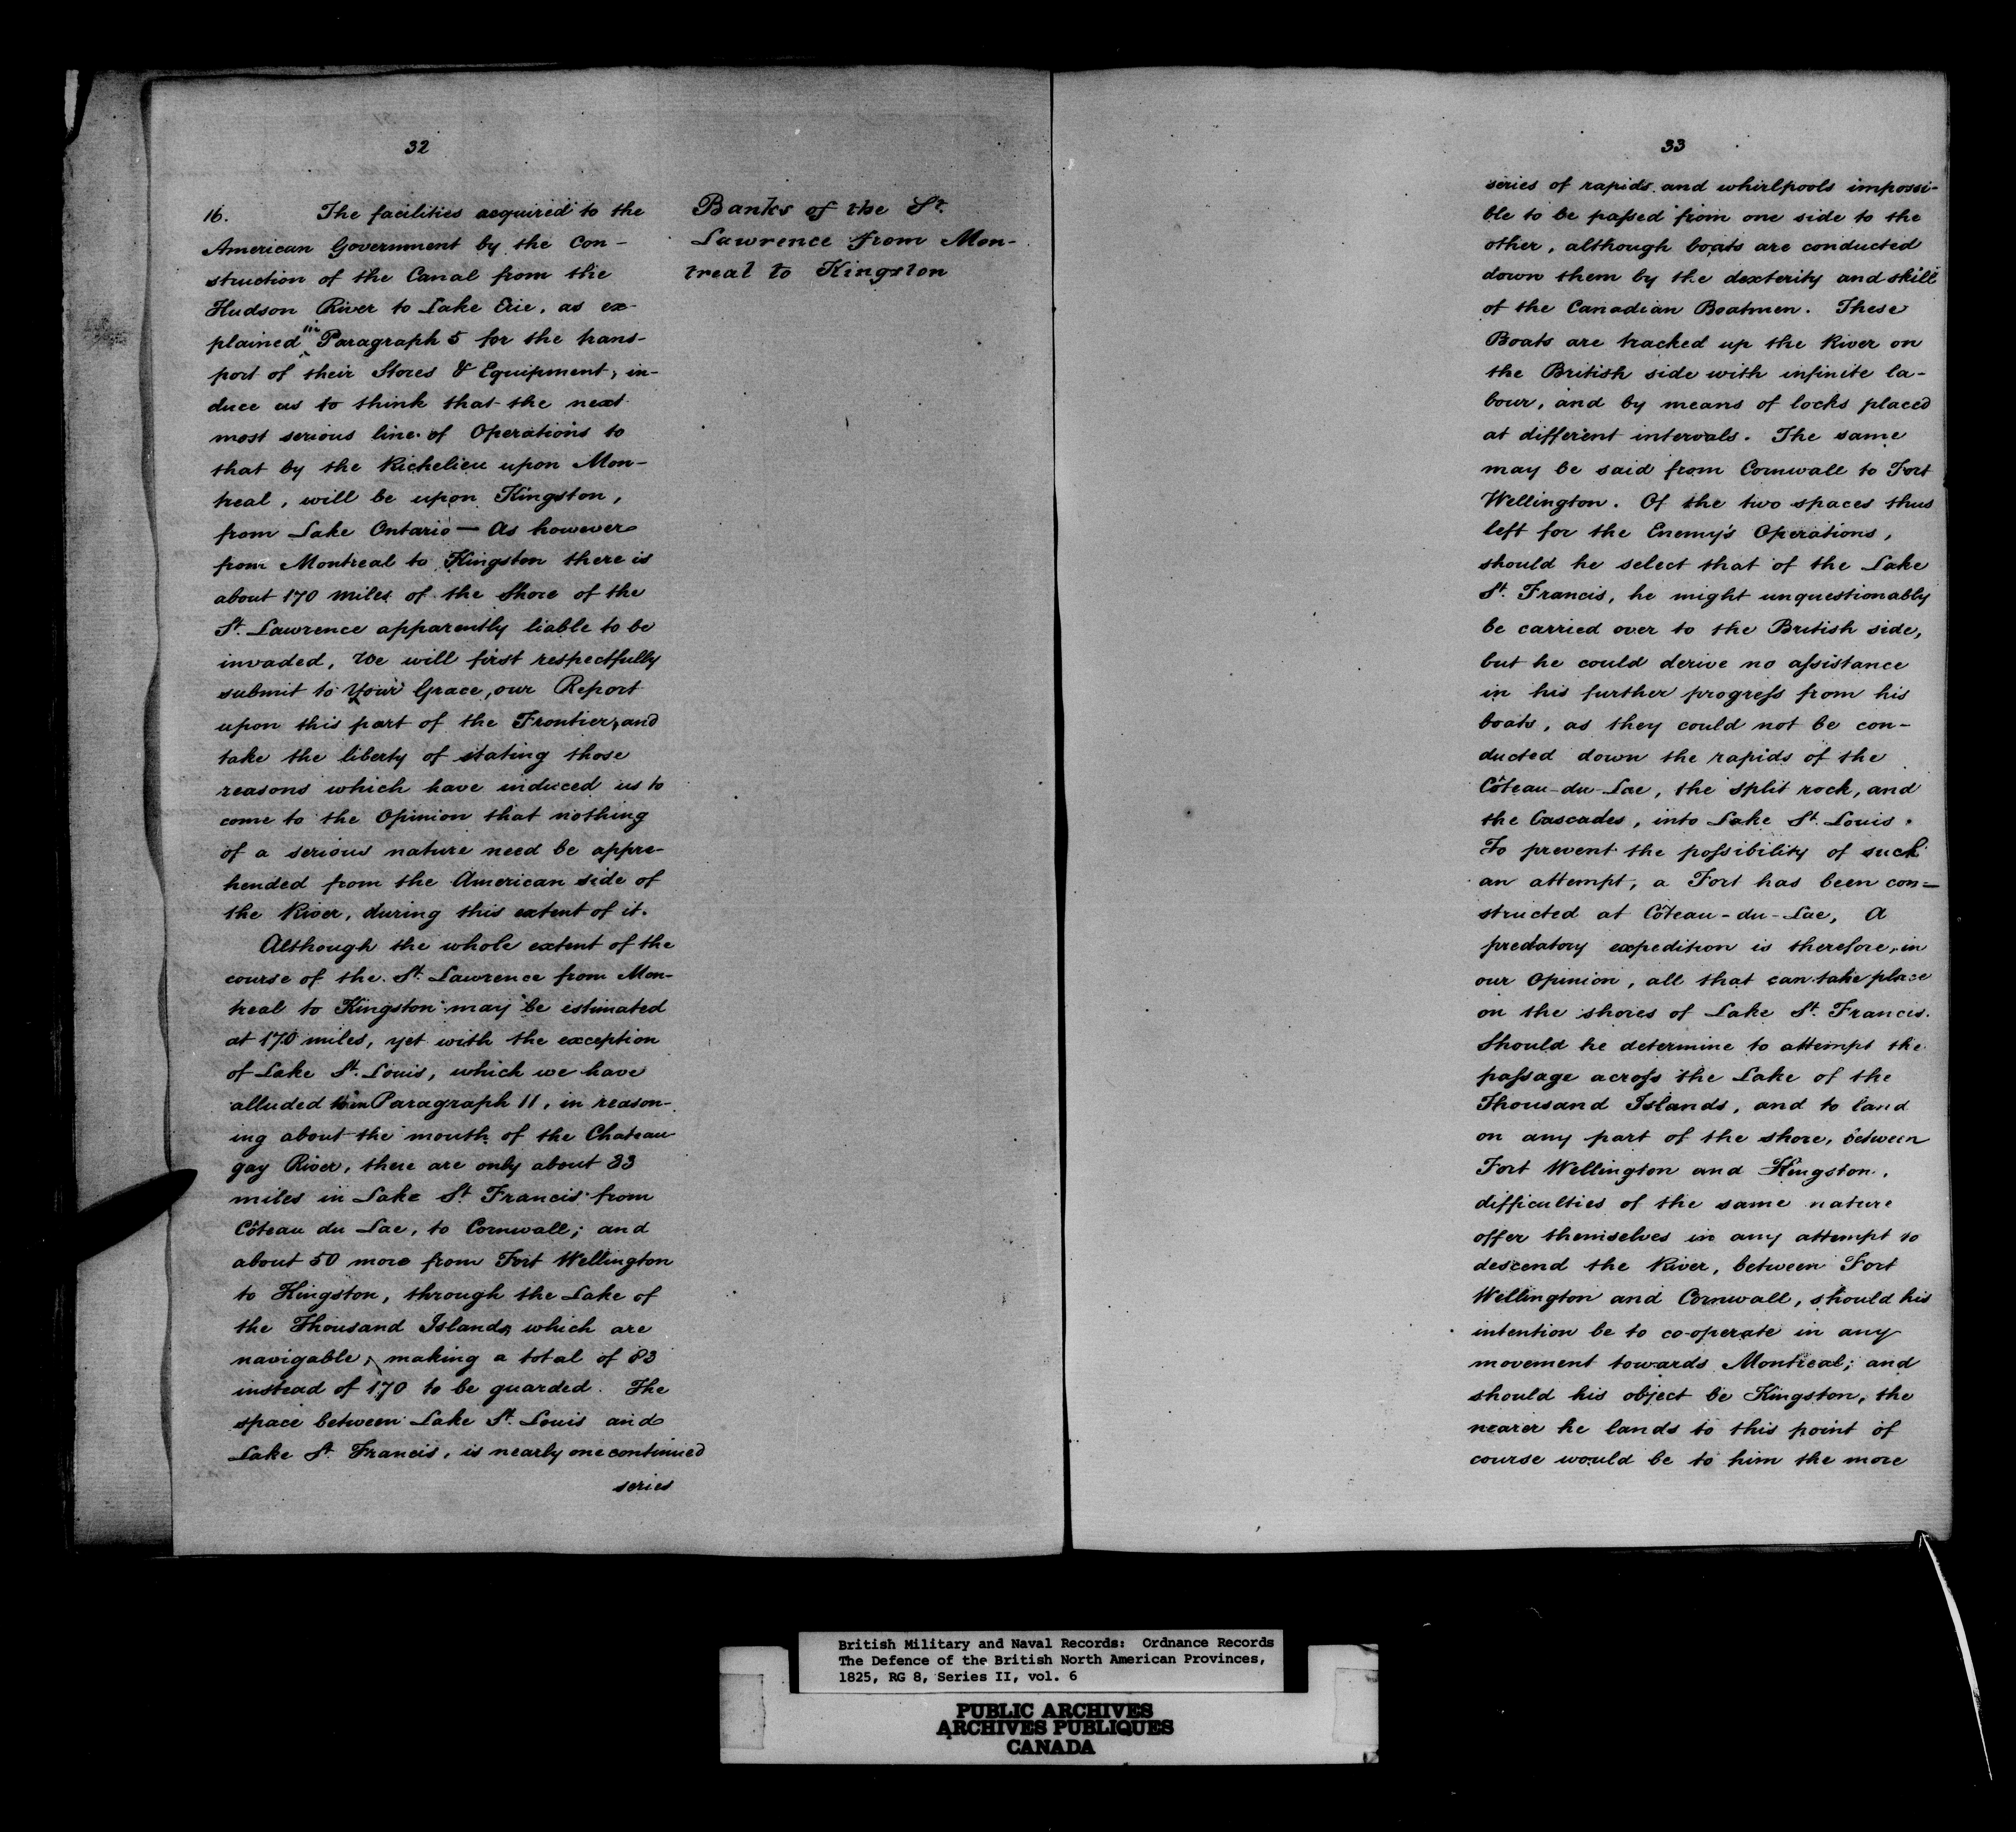 32
16. The facilities acquired to the
American Government by the Con-
struction of the Canal from the
Hudson River to Lake Erie, as ex-
plained in Paragraph 5 for the trans-
port of their Stores & Equipment, in-
duce us to think that the next
most serious line of Operations to
that by the Richelieu upon Mon-
treal, will be upon Kingston,
from Lake Ontario — As however
from Montreal to Kingston there is
about 170 miles of the Shore of the
St. Lawrence apparently liable to be
invaded, We will first respectfully
submit to Your Grace, our Report
upon this part of the Frontier, and
take the liberty of stating those
reasons which have induced us to
come to the Opinion that nothing
of a serious nature need be appre-
hended from the American side of
the River, during this extent of it.
Although the whole extent of the
course of the St. Lawrence from Mon-
treal to Kingston may be estimated
at 170 miles, yet with the exception
of Lake St. Louis, which we have
alluded to in Paragraph 11, in reason-
ing about the mouth of the Chateau
gay River, there are only about 33
miles in Lake St. Francis from
Côteau du Lac, to Cornwall; and
about 50 more from Fort Wellington
to Kingston, through the Lake of
the Thousand Islands, which are
navigable, making a total of 83
instead of 170 to be guarded. The
space between Lake St. Louis and
Lake St. Francis, is nearly one continued
series
Banks of the St.
Lawrence from Mon-
treal to Kingston
33
series of rapids and whirlpools impossi-
ble to be passed from one side to the
other, although boats are conducted
down them by the dexterity and skill
of the Canadian Boatmen. These
Boats are tracked up the River on
the British side with infinite la-
bour, and by means of locks placed
at different intervals. The same
may be said from Cornwall to Fort
Wellington. Of the two spaces thus
left for the Enemy's Operations,
should he select that of the Lake
St. Francis, he might unquestionably
be carried over to the British side,
but he could derive no assistance
in his further progress from his
boats, as they could not be con-
ducted down the rapids of the
Côteau-du-Lac, the split rock, and
the Cascades, into Lake St. Louis.
To prevent the possibility of such
an attempt, a Fort has been con-
structed at Côteau-du-Lac, A
predatory expedition is therefore, in
our Opinion, all that can take place
on the shores of Lake St. Francis.
Should he determine to attempt the
passage across the Lake of the
Thousand Islands, and to land
on any part of the shore, between
Fort Wellington and Kingston,
difficulties of the same nature
offer themselves in any attempt to
descend the River, between Fort
Wellington and Cornwall, should his
intention be to co-operate in any
movement towards Montreal; and
should his object be Kingston, the
nearer he lands to this point of
course would be to him the more
British Military and Naval Records: Ordnance Records
The Defence of the British North American Provinces,
1825, RG 8, Series II, vol. 6
PUBLIC ARCHIVES
ARCHIVES PUBLIQUES
CANADA